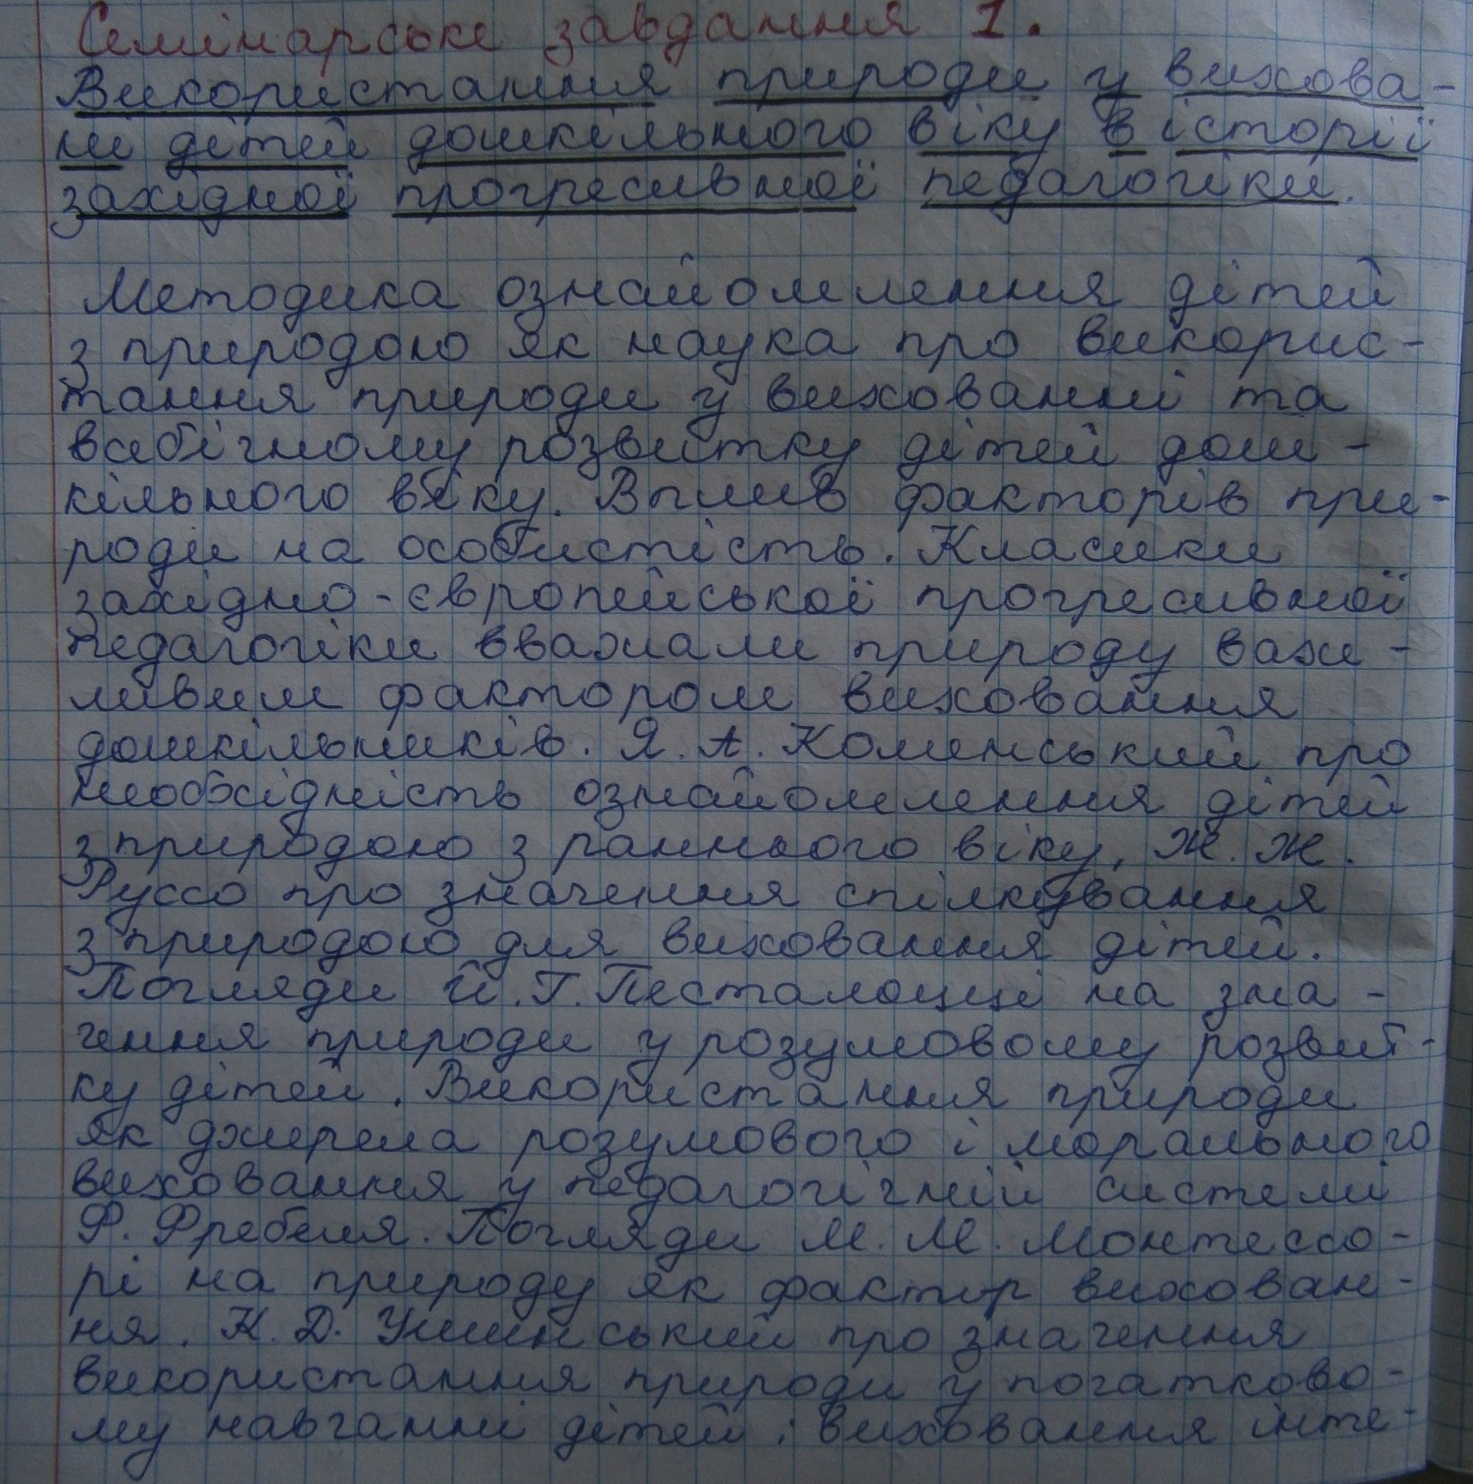 Семінарське завдання 1.
Використання природи у вихова-
ні дітей дошкільного віку в історії
західної прогресивної педагогіки.
Методика ознайомлення дітей
з природою як наука про викорис-
тання природи у вихованні та
всебічному розвитку дітей дош-
кільного віку. Вплив факторів при-
роди на особистість. Класики
західно-європейської прогресивної
педагогіки вважали природу важ-
ливим фактором виховання
дошкільників. Я. А. Коменський про
необхідність ознайомлення дітей
з природою з раннього віку, Ж. Ж.
Руссо про значення спілкування
з природою для виховання дітей.
Погляди Й. Г. Песталоцці на зна-
чення природи у розумовому розвит-
ку дітей. Використання природи
як джерела розумового і морального
виховання у педагогічній системі
Ф. Фребеля. Погляди М. М. Монтессо-
рі на природу як фактор вихован-
ня. К. Д. Ушинський про значення
використання природи у початково-
му навчанні дітей: виховання інте-